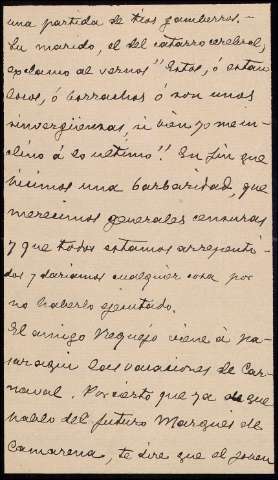 una partida de tios gamberros.-
Su marido, el del catarro cerebral,
exclamo al vernos "Estos, ó estan
locos, ó borrachos ó son unos
sinvergüenzas, si bien yo me in-
clino á lo ultimo". En fin que
hicimos una barbaridad, que
merecimos generales censuras
y que todos estamos arrepenti-
dos y dariamos cualquier cosa por
no haberlo ejecutado.
El amigo Requejo viene á pa-
sar aqui las vacaciones de Car-
naval. Por cierto que ya que
hablo del futuro Marqués de
Camarena, te dire que el joven